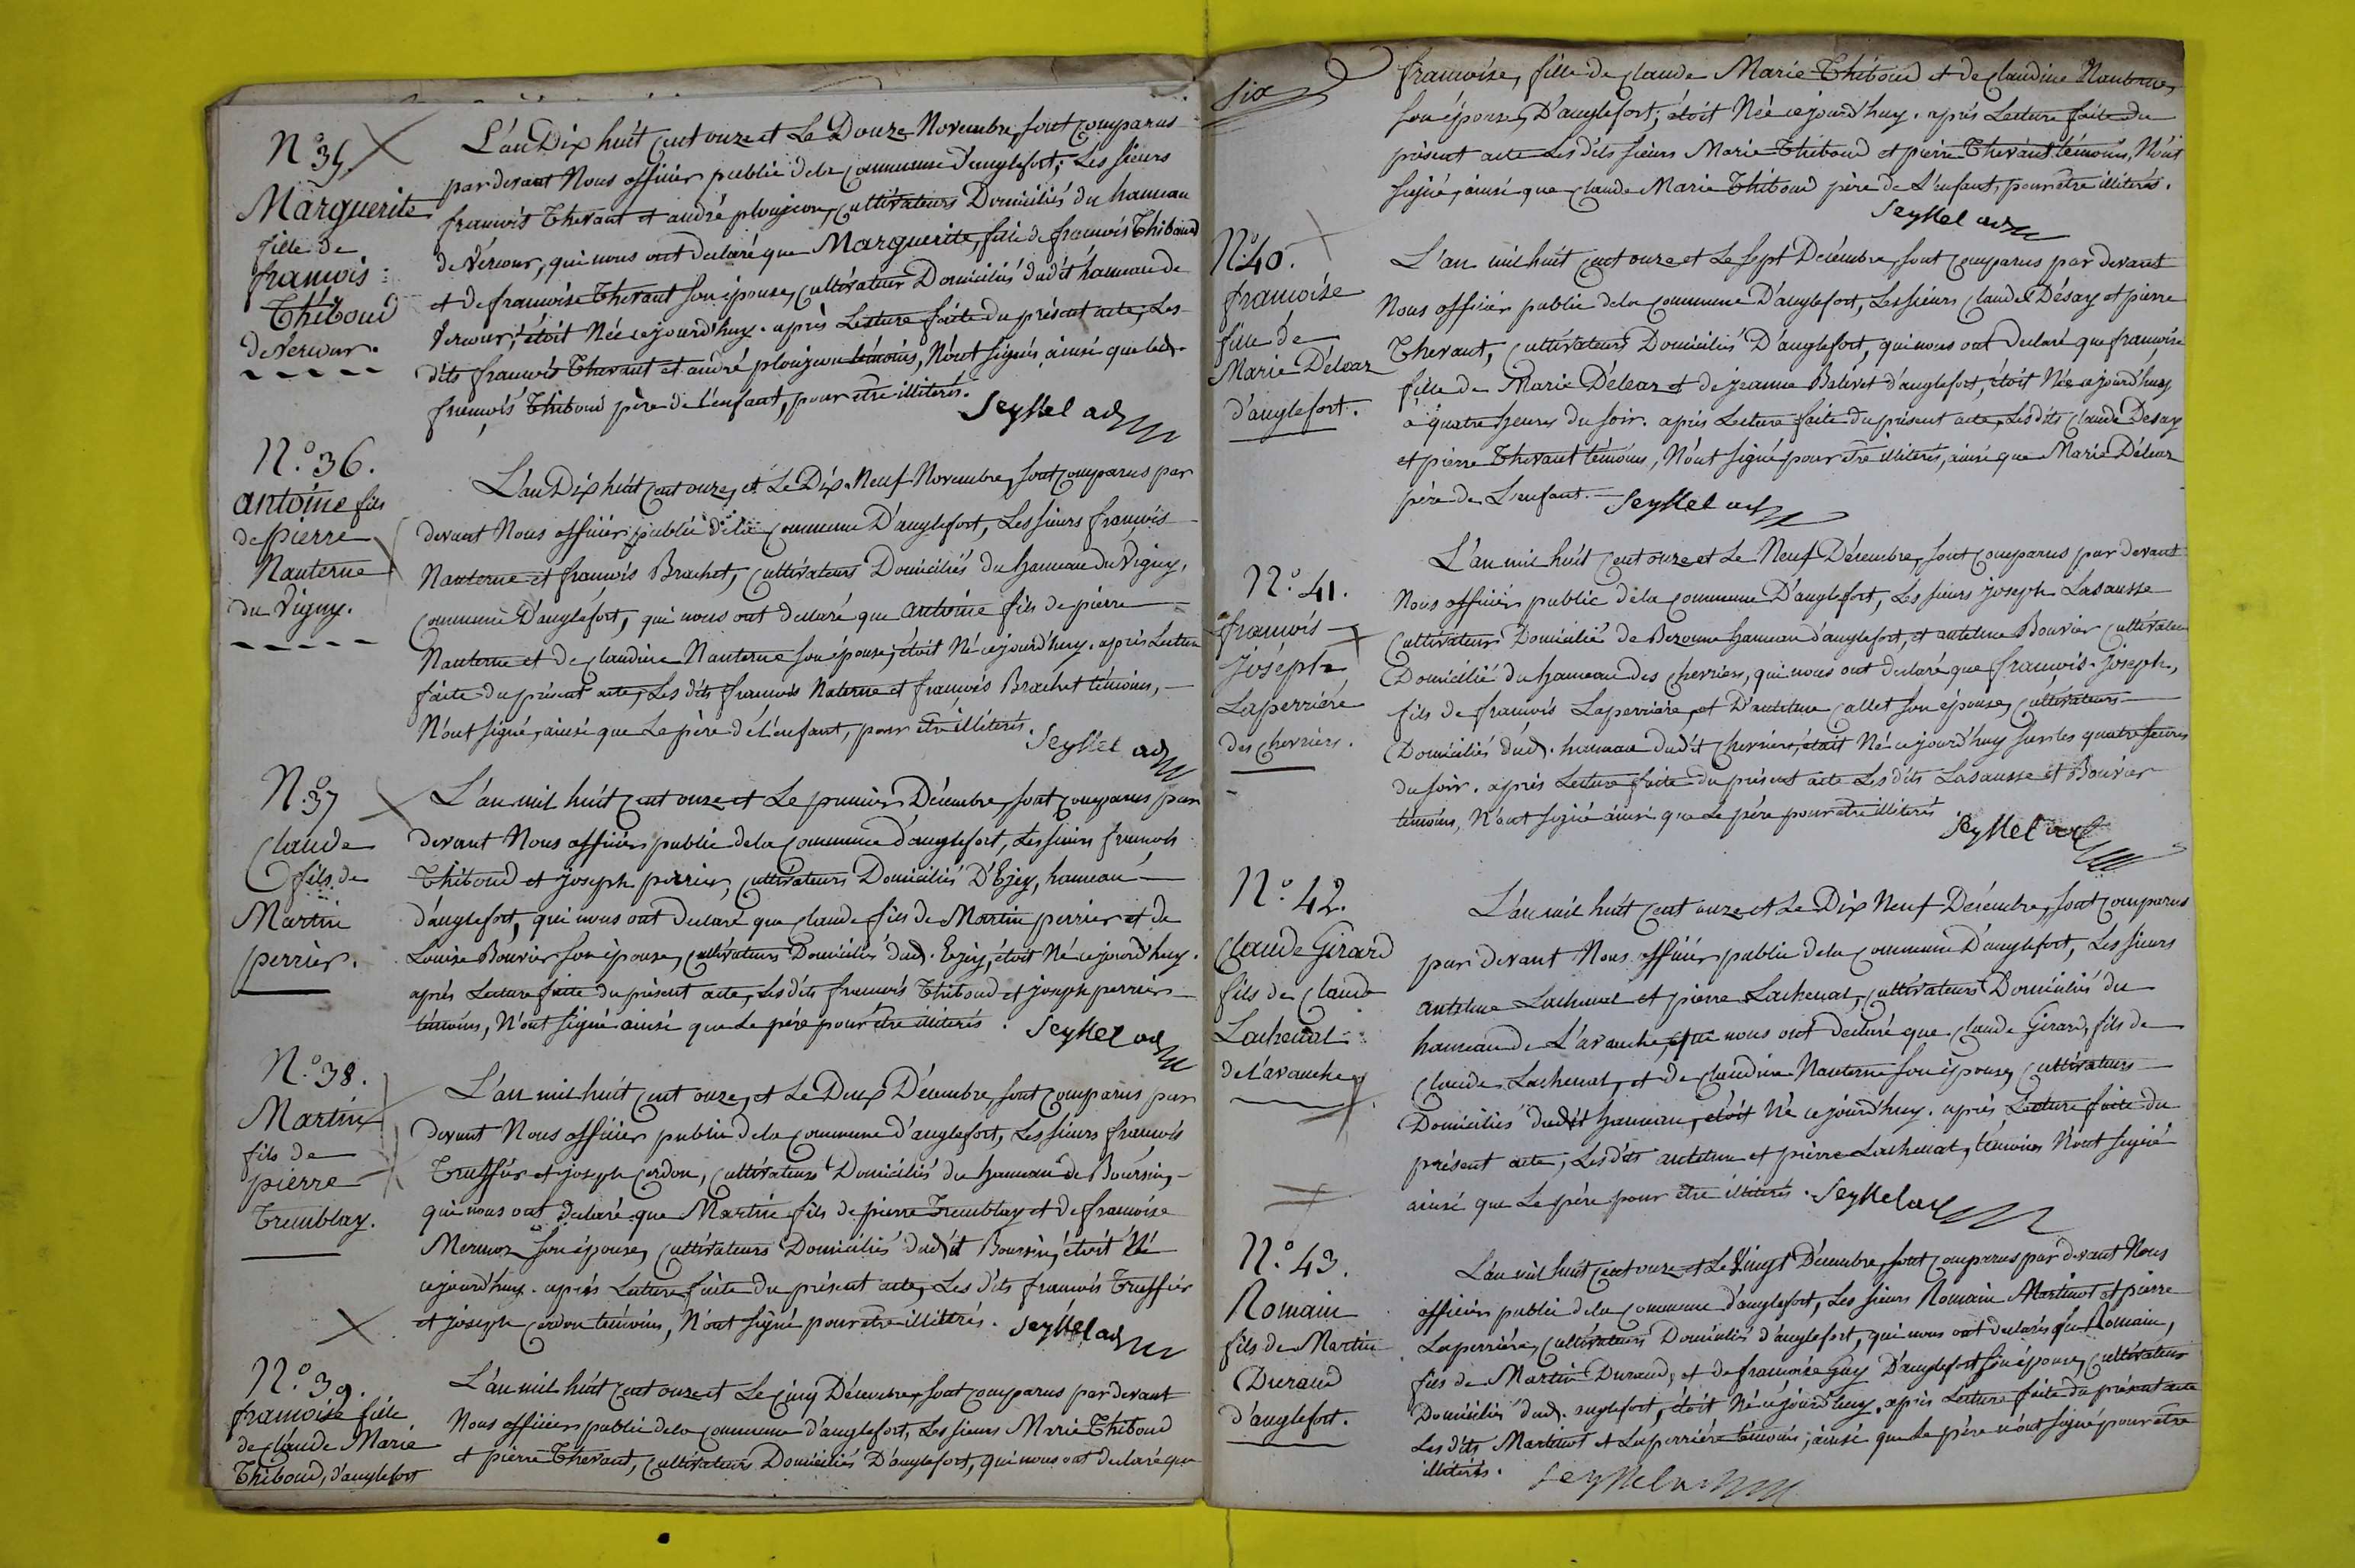 N.º 35.
Marguerite
fille de
francois
Thiboud
de Vercour.
L'an Dix huit cent onze et Le Douze Novembre, sont comparus
par devant Nous officier public dela commune d'anglefort, Les sieurs
francois Thevant et andré ploujeon, cultivateurs Domiciliés du hameau
de Vercour, qui nous ont declaré que Marguerite, fille de francois Thiboud
et de francoise Thevant son épouse, cultivateur Domiciliés dudit hameau de
Vercour, étoit Née cejourd'huy. après Lecture faite du présent acte, Les
dits francois Thevant et andré ploujeon témoins, N'ont signés, ainsi que led.
francois Thiboud père de l'enfant, pour etre illiterés.
Seyssel adj
N.º 36.
antoine fils
de pierre
Nanterne
du Vigny.
L'an Dix huit cent onze, et Le Dix Neuf Novembre, sont comparus par
devant Nous officier public dela commune D'anglefort, Les sieurs francois
Nanterne et francois Brachet, cultivateurs Domiciliés du hameau du Vigny,
commune D'anglefort, qui nous ont declaré que antoine fils de pierre
Nanterne et de claudine Nanterne son épouse, étoit Né cejourd'huy. après Lecture
faite du présent acte, Les dits francois Naterne et francois Brachet témoins,
N'ont signé, ainsi que Le père de L'enfant, pour etre illiterés.
Seyssel adj
N.º 37
Claude
fils de
Martin
perrier.
L'an mil huit cent onze et Le premier Décembre, sont comparus par
devant Nous officier public dela commune d'anglefort, Les sieurs francois
Thiboud et joseph perrier, cultivateurs Domiciliés D'Ejey, hameau
d'anglefort, qui nous ont declaré que claude fils de Martin perrier et de
Louise Bouvier son épouse, cultivateurs Domiciliés dud. Ejey, étoit Né cejourd'huy.
après Lecture faite du présent acte, Les dits francois Thiboud et joseph perrier
témoins, N'ont signé ainsi que Le père pour etre illiterés. Seyssel adj
N.º 38.
Martin
fils de
pierre
Tremblay.
L'an mil huit cent onze, et Le Deux Décembre, sont comparus par
devant Nous officier public dela commune d'anglefort, Les sieurs francois
Truffier et joseph Cordon, cultivateurs Domiciliés du hameau de Boursin,
qui nous ont declaré que Martin fils de pierre Tremblay et de francoise
Mermoz son épouse, cultivateurs Domiciliés dudit Boursin, étoit Né
cejourd'huy. après Lecture faite du présent acte, Les dits francois Truffier
et joseph Cordon témoins, N'ont signé pour etre illiterés. Seyssel adj
N.º 39.
francoise fille
de claude Marie
Thiboud, d'anglefort
L'an mil huit cent onze et Le cinq Décembre, sont comparus par devant
Nous officier public dela commune d'anglefort, Les sieurs Marie Thiboud
et pierre Thevant, cultivateurs Domiciliés D'anglefort, qui nous ont declaré que
six
francoise, fille de claude Marie Thiboud et de claudine Nanterne,
son épouse, D'anglefort; étoit Née cejourd'huy. après Lecture faite du
présent acte Les dits sieurs Marie Thiboud et pierre Thevant témoins, N'ont
signé, ainsi que claude Marie Thiboud père de L'enfant, pour etre illiterés.
Seyssel adj
N.º 40.
francoise
fille de
Marie Déléaz
d'anglefort.
L'an mil huit cent onze et Le sept Décembre, sont comparus par devant
Nous officier public dela commune D'anglefort, Les sieurs claude Désay et pierre
Thevant, cultivateurs Domiciliés D'anglefort, qui nous ont declaré que francoise
fille de Marie Déléaz et de jeanne Balivet d'anglefort, étoit Née cejourd'huy
à quatre heures du soir. après Lecture faite du présent acte, Les dits claude Desay
et pierre Thevant témoins, N'ont signé pour etre illiterés, ainsi que Marie Déléaz
père de L'enfant. Seyssel adj
N.º 41.
francois
Joseph
Laperrière
des cherriers.
L'an mil huit cent onze et Le Neuf Décembre, sont comparus par devant
Nous officier public dela commune D'anglefort, Les sieurs joseph Lasausse
cultivateur Domicilié de Bezonne hameau d'anglefort, et antelme Bouvier cultivateur
Domicilié du hameau des cherriers, qui nous ont declaré que francois joseph,
fils de francois Laperriere, et D'antelme callet son épouse, cultivateurs
Domiciliés dud. hameau dudit cherriers, était Né cejourd'huy sur les quatre heures
du soir. après Lecture faite du présent acte Les dits Lasausse et Bouvier
témoins, N'ont signé ainsi que Le père pour etre illiterés
Seyssel adj
N.º 42.
Claude Girard
fils de claude
Lachenal
de L'avanche
L'an mil huit cent onze et Le Dix Neuf Décembre, sont comparus
par devant Nous officier public dela commune D'anglefort, Les sieurs
antelme Lachenal et pierre Lachenal, cultivateurs Domiciliés du
hameau de L'avanche, qui nous ont declaré que claude Girard, fils de
claude Lachenal, et de claudine Nanterne son épouse, cultivateurs
Domiciliés dudit hameau, étoit Né cejourd'huy. après Lecture faite du
présent acte, Les dits antelme et pierre Lachenal, témoins N'ont signé
ainsi que Le père pour etre illiterés. Seyssel adj
N.º 43.
Romain
fils de Martin
Durand
d'anglefort.
L'an mil huit cent onze et Le Vingt Décembre, sont comparus par devant Nous
officier public dela commune d'anglefort, Les sieurs Romain Martinot et pierre
Laperrière, cultivateurs Domiciliés d'anglefort, qui nous ont declarés que Romain,
fils de Martin Durand, et de francoise Guy D'anglefort son épouse, cultivateur
Domiciliés dud. anglefort, étoit Né cejourd'huy, après Lecture faite du présent acte
Les dits Martinot et Laperrière témoins, ainsi que Le père n'ont signé pour etre
illiterés. Seyssel adj